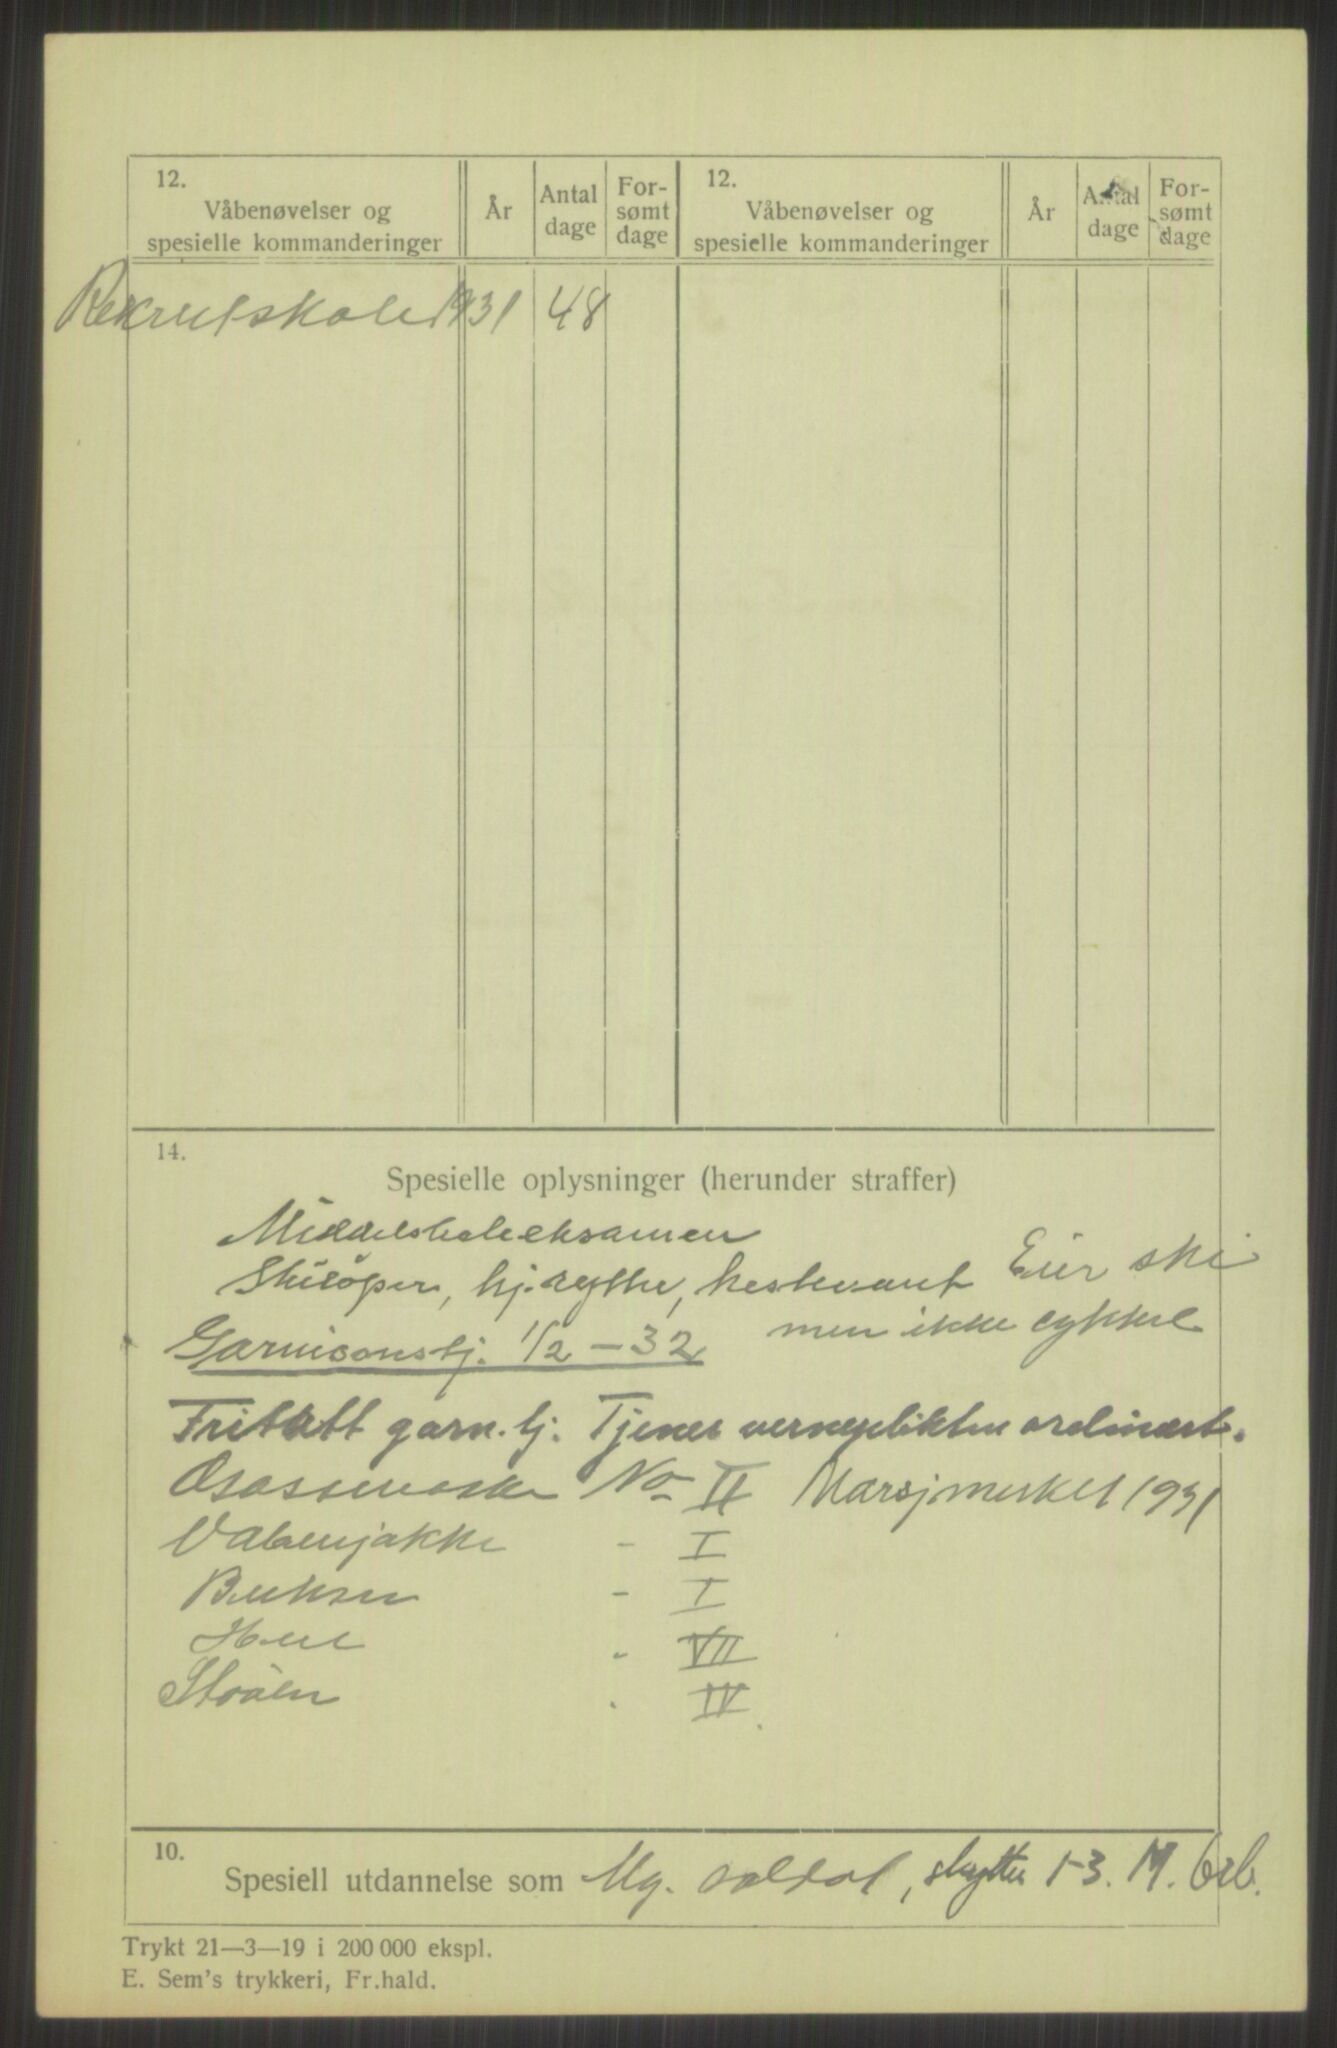 12.
Våbenøvelser og
spesielle kommanderinger
År
Antal
dage
For-
sømt
dage
12.
Våbenøvelser og
spesielle kommanderinger
År
Antal
dage
For-
sømt
dage
Rekrutskole 1931 48
14.
Spesielle oplysninger (herunder straffer)
Middelskoleeksamen
Skiløper, hj.rytter, hestevant Eier ski
men ikke cykkel
Garnisonstj. 1/2 - 32
Fritatt garn. tj. Tjener verneplikten ordinært.
No II Marsjmerket 1931
Våbenjakke - I
Bukser - I
Hue - VII
Støvler - IV.
10.
Spesiell utdannelse som Mg. soldat, skytter 1-3. M.
Trykt 21—3—19 i 200 000 ekspl.
E. Sem's trykkeri, Fr.hald.